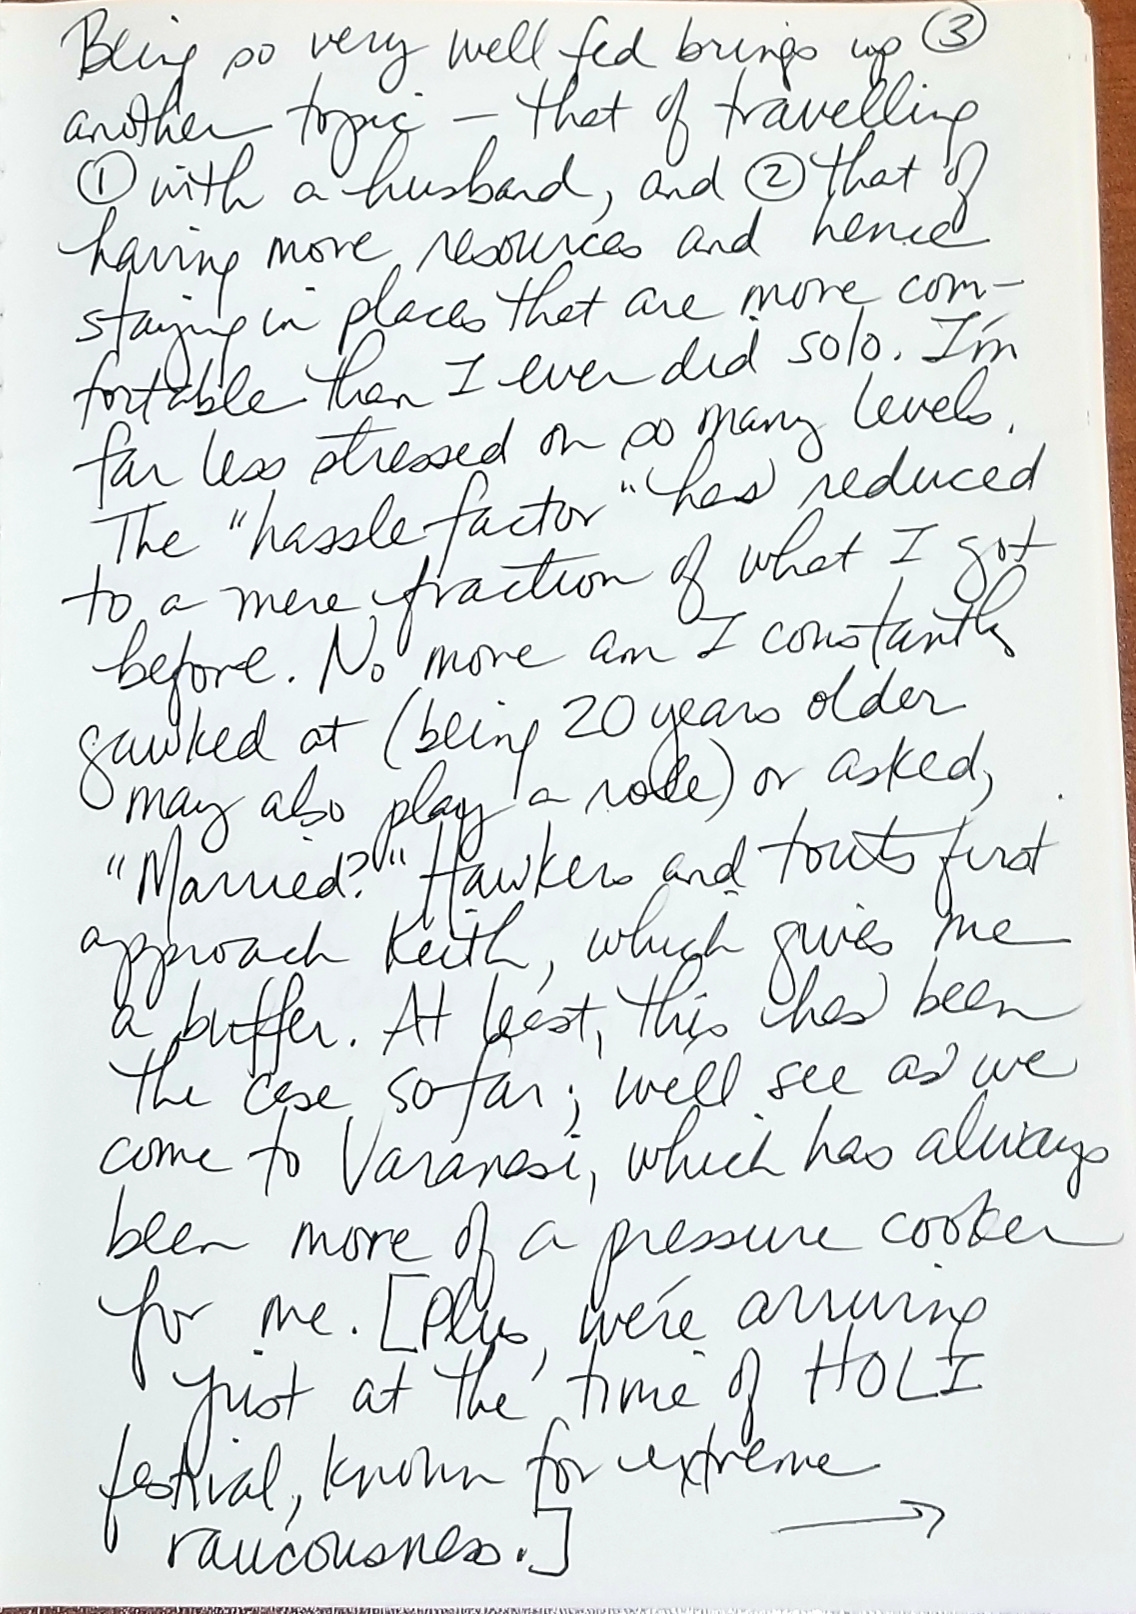 Being so very well fed brings up ③
another topic – that of travelling
① with a husband, and ② that of
having more resources and hence
staying in places that are more com-
fortable than I ever did solo. I'm
far less stressed on so many levels.
The "hassle factor" has reduced
to a mere fraction of what I got
before. No more am I constantly
gawked at (being 20 years older
may also play a role) or asked,
"Married?" Hawkers and touts first
approach Keith, which gives me
a buffer. At least, this has been
the case so far; we'll see as we
come to Varanasi, which has always
been more of a pressure cooker
for me. [Plus, we're arriving
just at the time of HOLI
festival, known for extreme
raucousness.] →